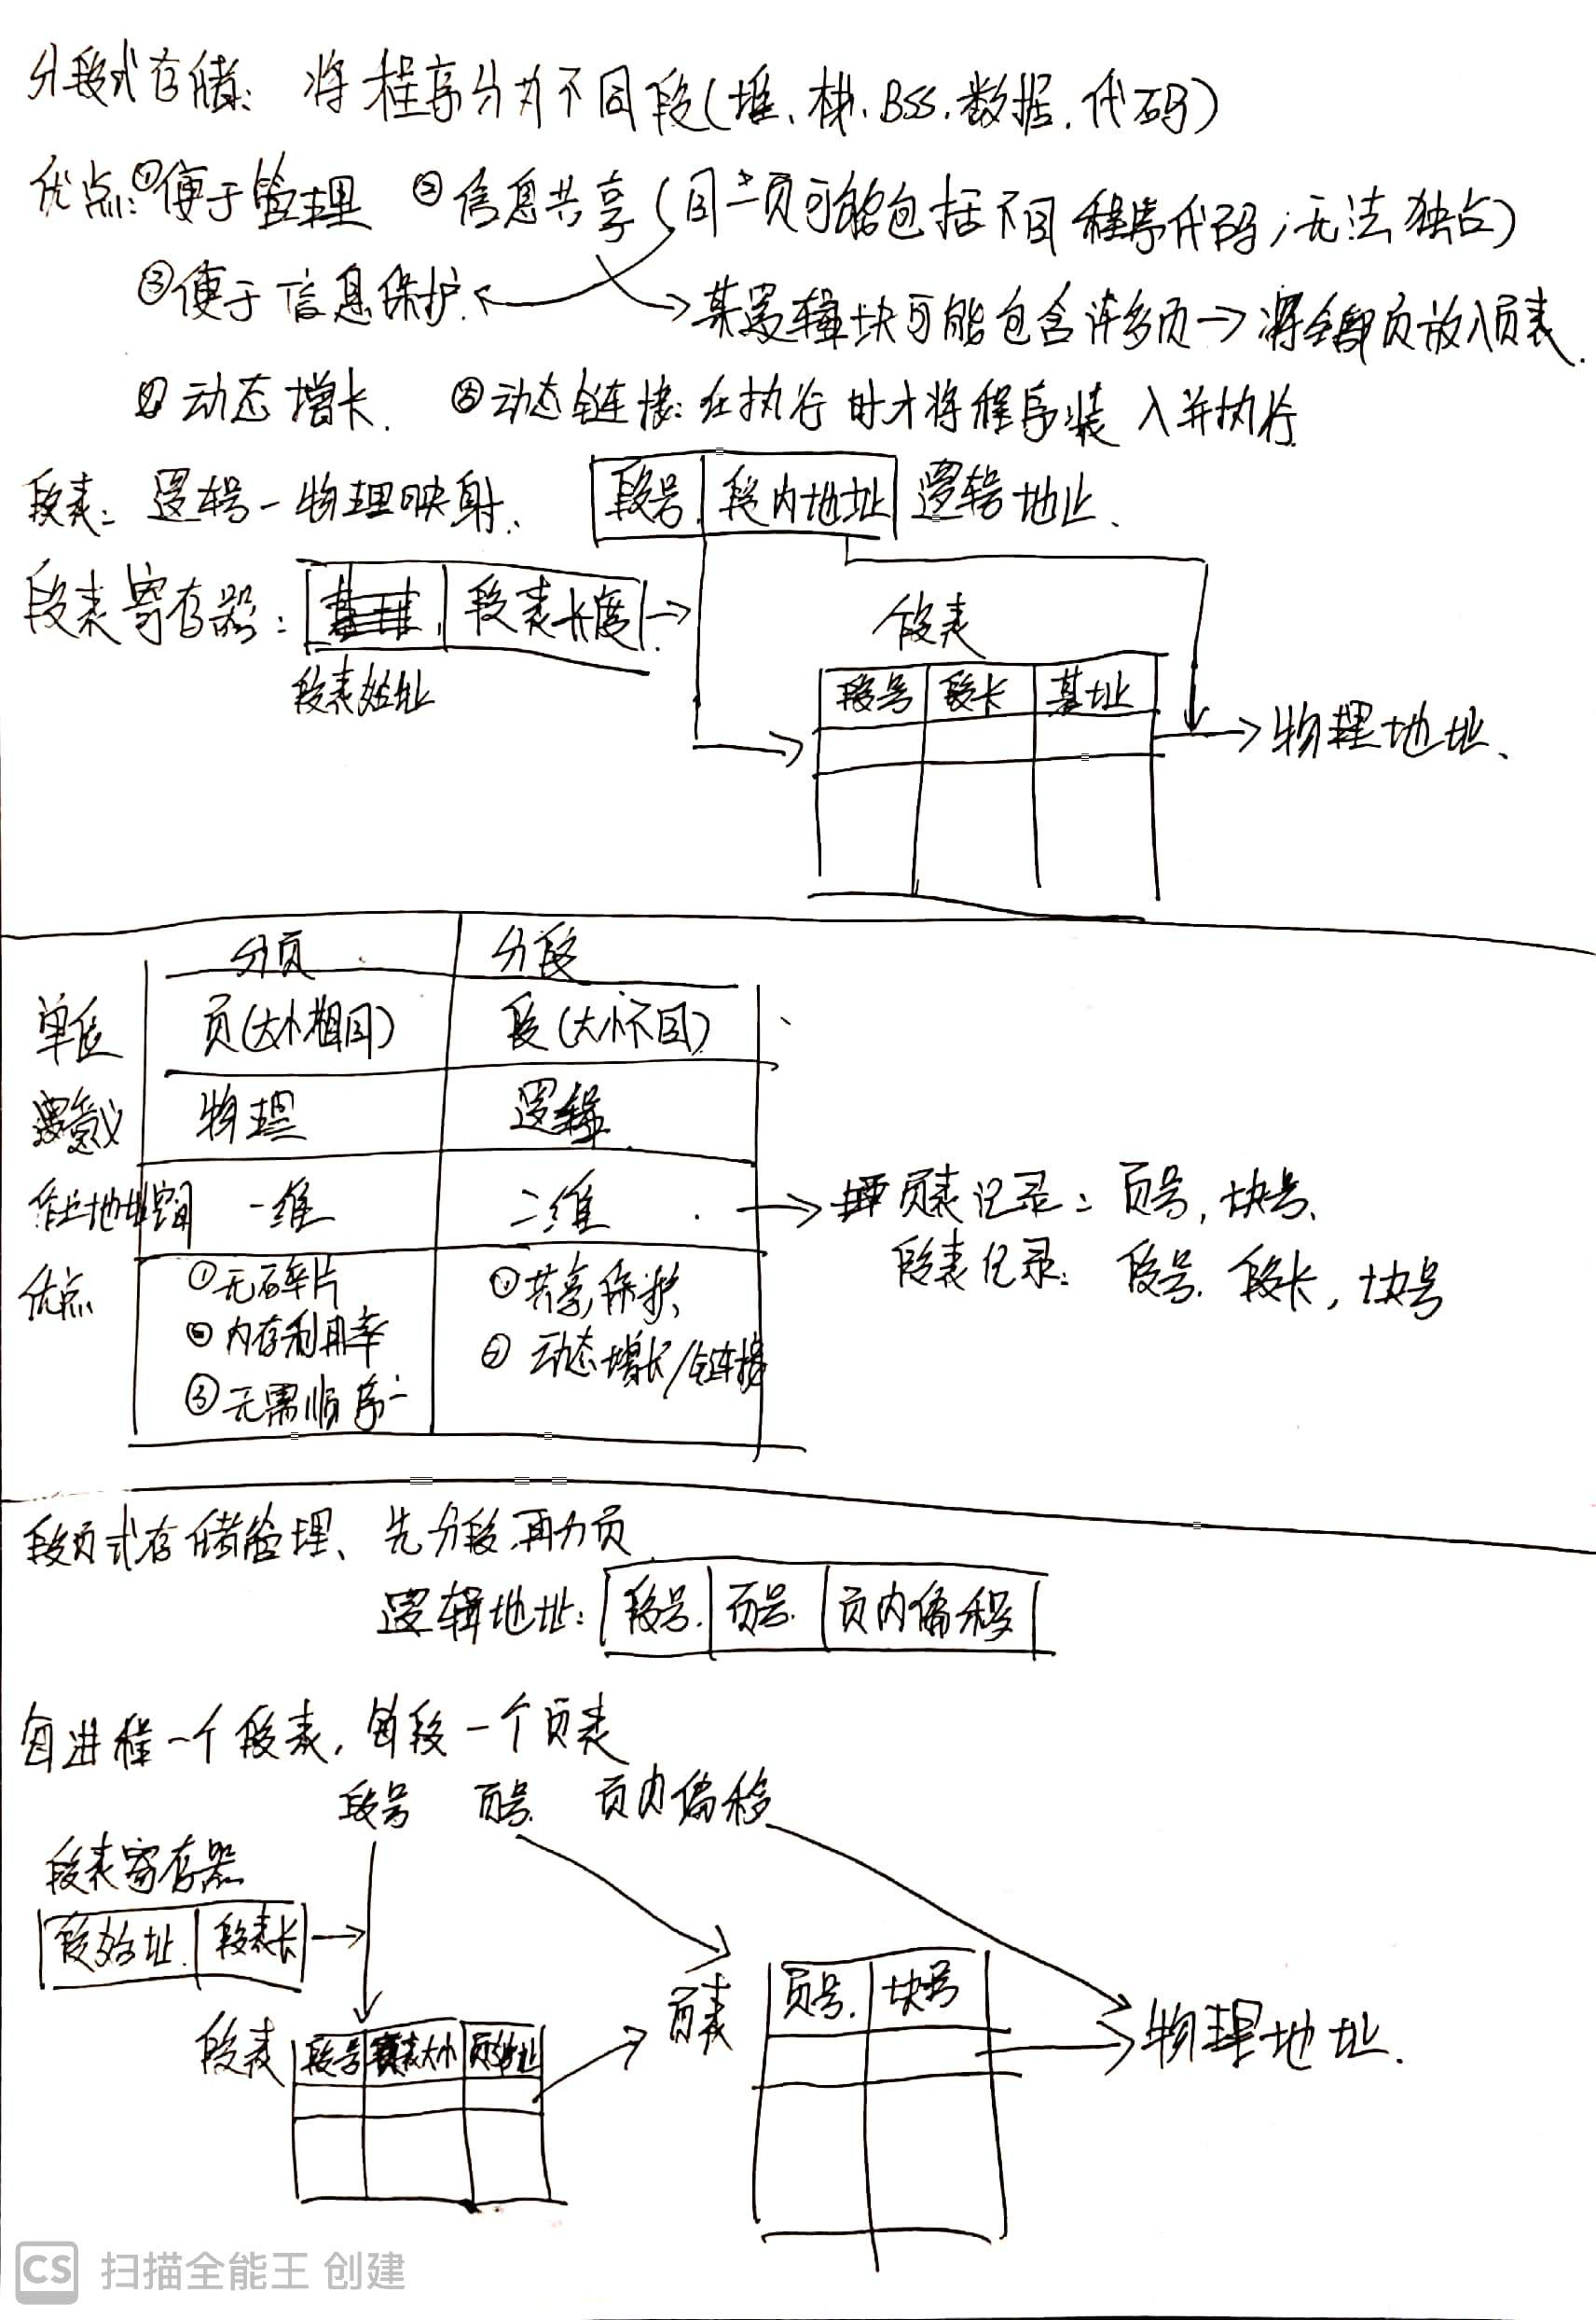 分段式存储: 将程序分为不同段(堆、栈、BSS、数据、代码)
优点:①便于管理 ②信息共享(同一页可能包括不同程序代码,无法独占)
③便于信息保护.
某逻辑块可能包含许多页→将全部页放入页表.
④动态增长. ⑤动态链接:在执行时才将程序装入并执行
段表: 逻辑-物理映射. 段号 段内地址 逻辑地址.
段表寄存器: 段表长度
段表始址
段表
段号 段长 基址
物理地址.
分页 分段
单位 页(大小相同) 段(大小不同)
意义 物理 逻辑
作业地址空间 一维 二维 → 页表记录: 页号, 块号.
段表记录: 段号. 段长, 块号
优点 ①无碎片 ①共享,保护
②内存利用率 ②动态增长/链接
③无需顺序
段页式存储管理、先分段,再分页
逻辑地址: 段号. 页号. 页内偏移
每进程一个段表, 每段一个页表
段号 页号 页内偏移
段表寄存器
段始址. 段表长
段表 段号 页表大小 页始址
页表 页号. 块号
物理地址.
CS 扫描全能王 创建